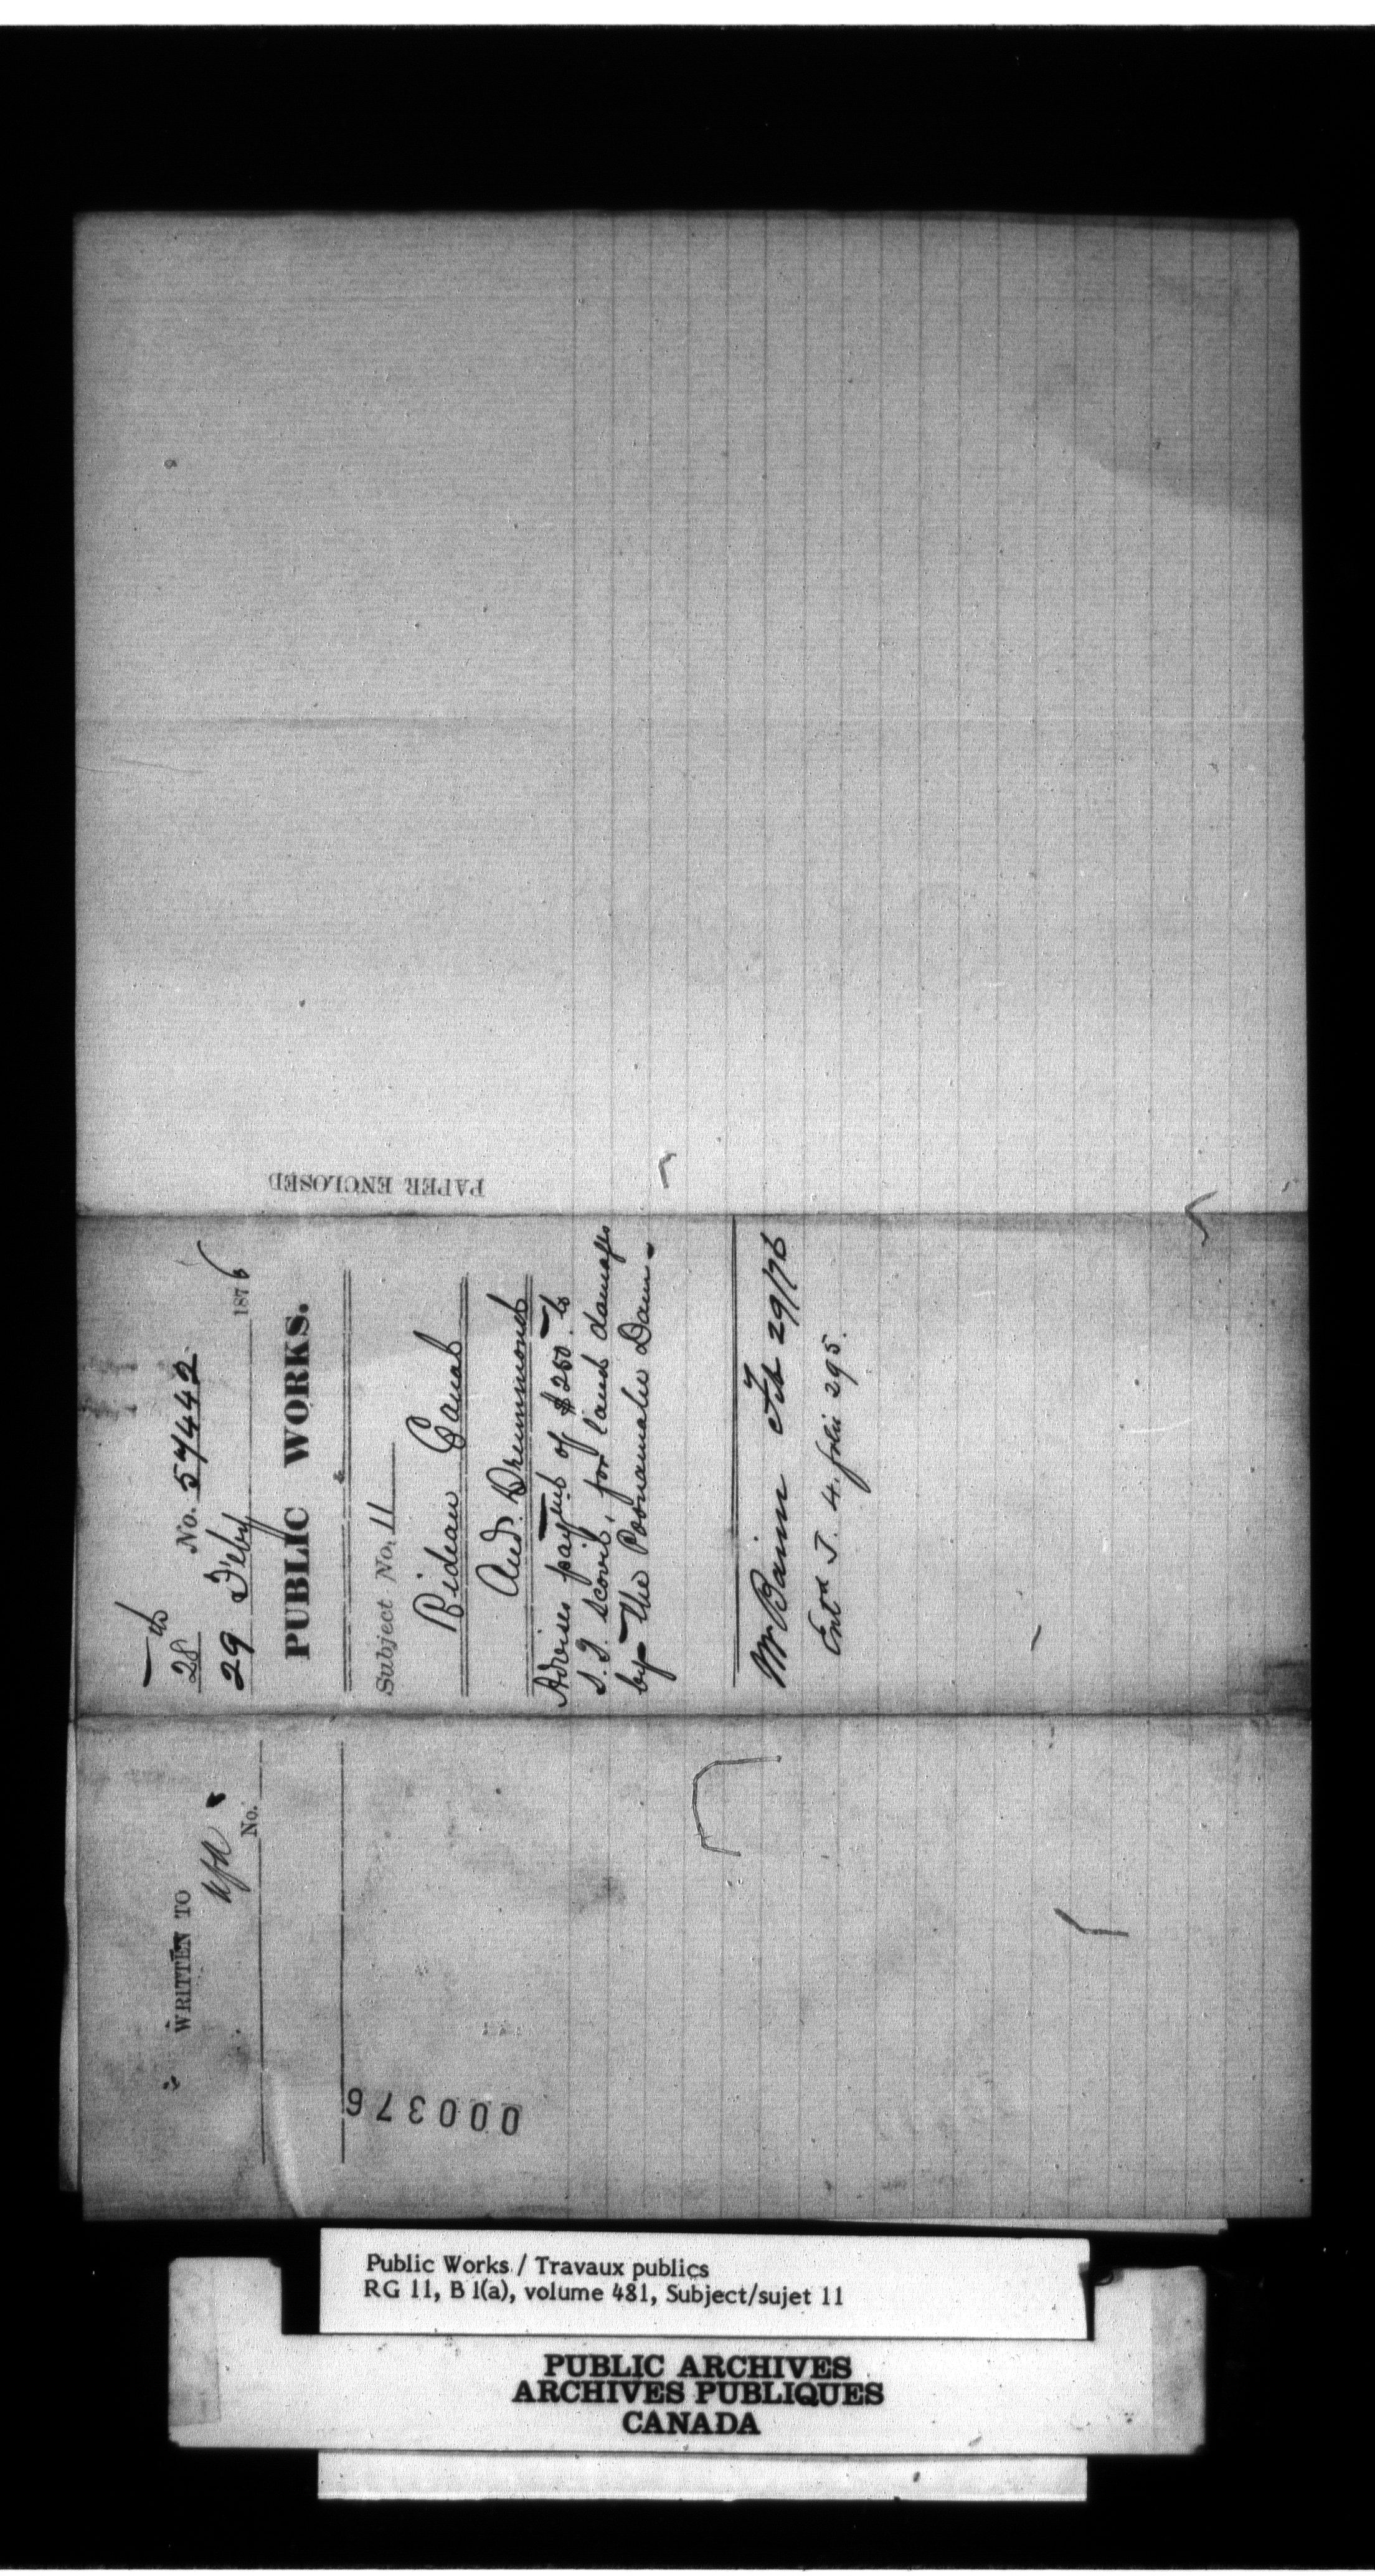 PAPER ENCLOSED
28 No. 57442
29 Feby 1876
PUBLIC WORKS.
Subject No. 11
Rideau Canal
And. Drummond
Advises payent of $250. to
S. J. Scovil, for land damages
by the Poonamalie Dam.
Mr Bain Feb 29/76
Entd J. 4. folio 295.
WRITTEN TO
No.
000376
Public Works / Travaux publics
RG 11, B 1(a), volume 481, Subject/sujet 11
PUBLIC ARCHIVES
ARCHIVES PUBLIQUES
CANADA